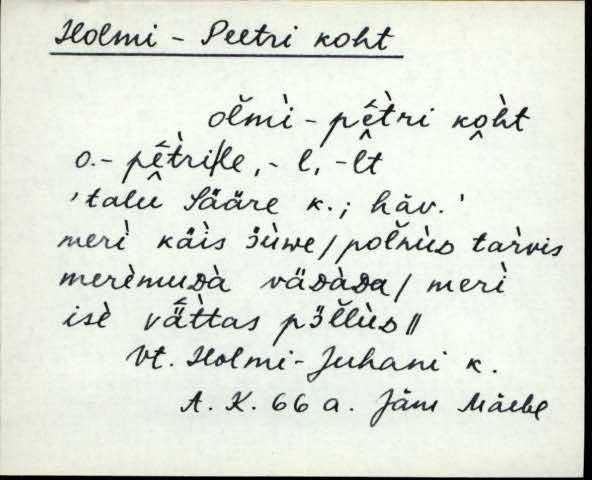 Holmi - Peetri koht
oľmì - pêtri koht
o.- pêtrille, - l, - lt
'talu Sääre k.; häv.'
merì käìs üùwe / poľnùᴅ tarvis
merèmuᴅà väᴅàᴅa / merì
isè vättas põllùᴅ ||
Vt. Holmi-Juhani k.
A. K. 66 a. Jäm Mäebe